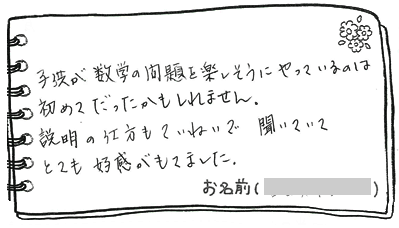 子供が数学の問題を楽しそうにやっているのは
初めてだったかもしれません.
説明の仕方もていねいで 聞いていて
とても 好感がもてました.
お名前( )